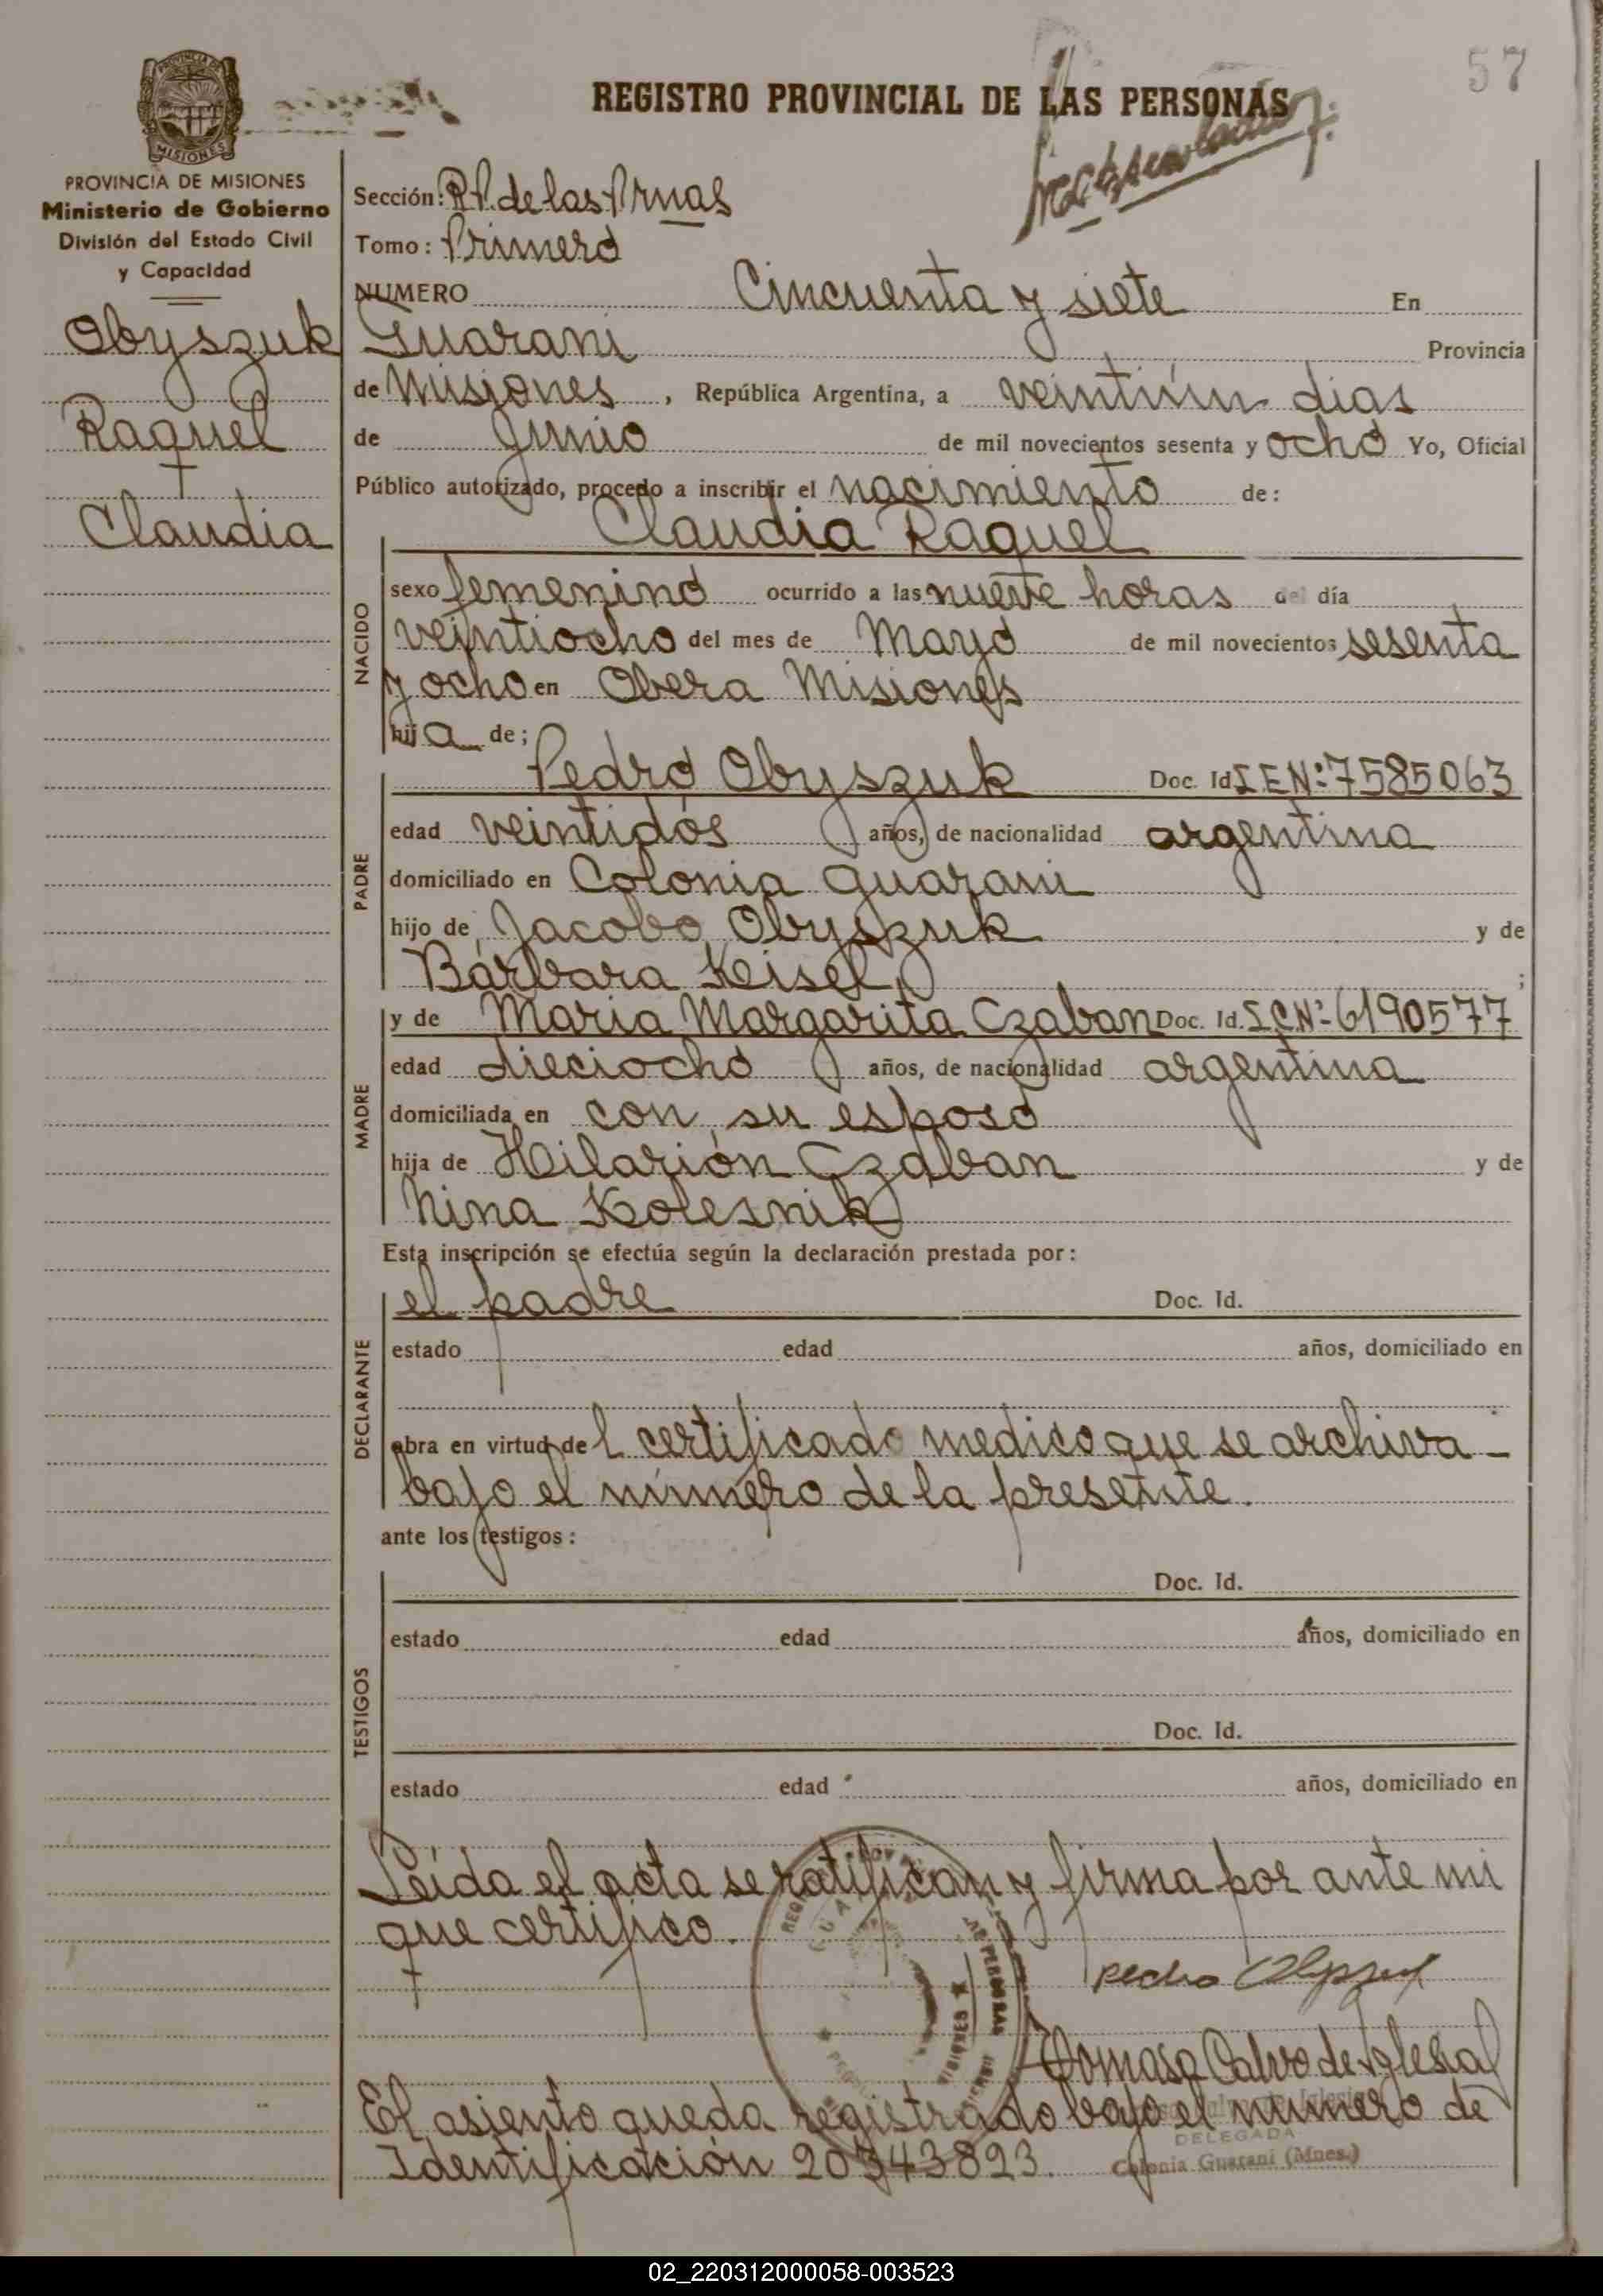 57
REGISTRO PROVINCIAL DE LAS PERSONAS
MISIONES
PROVINCIA DE MISIONES
Ministerio de Gobierno
División del Estado Civil
y Capacidad
Obyszuk
Raquel
Claudia
Sección: R.P. de las Prnas
Tomo: Primero
NUMERO Cincuenta y siete En
Guarani Provincia
de Misiones, República Argentina, a veintiún dias
de Junio de mil novecientos sesenta y ocho Yo, Oficial
Público autorizado, procedo a inscribir el nacimiento de:
Claudia Raquel
NACIDO
sexo femenino ocurrido a las nueve horas del día
veintiocho del mes de Mayo de mil novecientos sesenta
y ocho en Obera Misiones
hija de;
Pedro Obyszuk Doc. Id. I.E.Nº 7585063
PADRE
edad veintidós años, de nacionalidad argentina
domiciliado en Colonia Guarani
hijo de Jacobo Obyszuk y de
Bárbara Keisel ;
y de Maria Margarita Czaban Doc. Id. I.C.Nº 6190577
MADRE
edad dieciocho años, de nacionalidad argentina
domiciliada en con su esposo
hija de Hilarión Czaban y de
Nina Kolesnik
Esta inscripción se efectúa según la declaración prestada por:
el padre Doc. Id.
DECLARANTE
estado edad años, domiciliado en
obra en virtud del certificado medico que se archiva
bajo el número de la presente.
ante los testigos:
Doc. Id.
TESTIGOS
estado edad años, domiciliado en
Doc. Id.
estado edad años, domiciliado en
Leida el acta se ratifican y firma por ante mi
que certifico.
Pedro Obyszuk
Tomasa Calvo de Iglesias
El asiento queda registrado bajo el número de
Identificación 20343823.
DELEGADA
Colonia Guaraní (Mnes.)
02_220312000058-003523